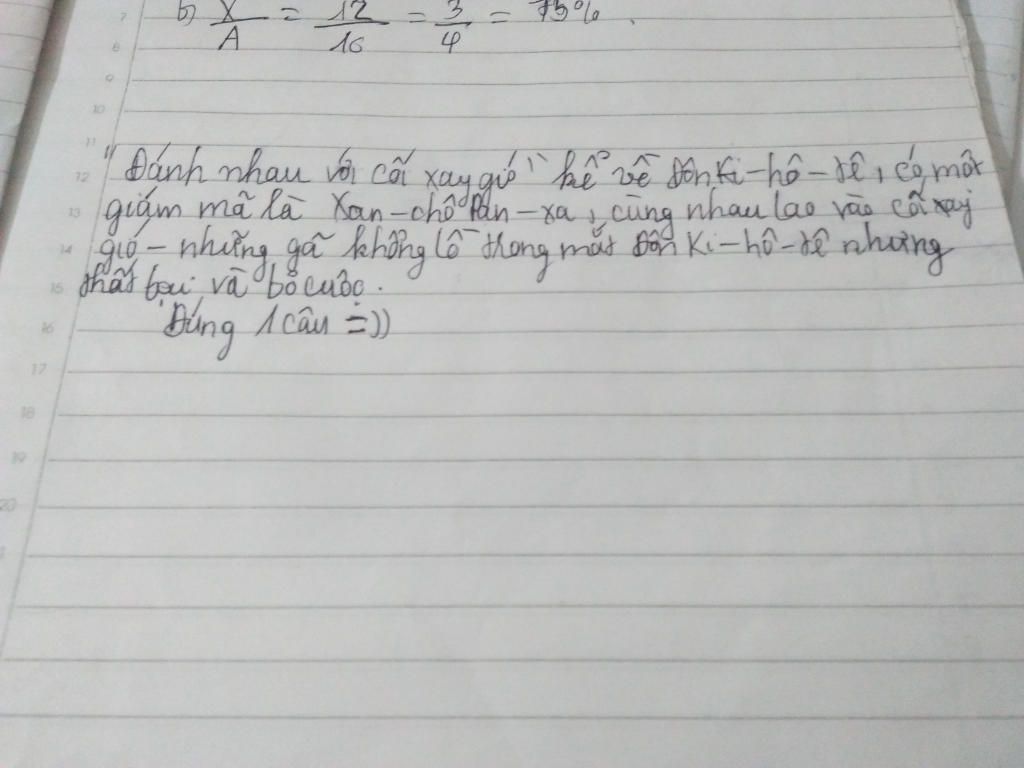 b) X/A = 12/16 = 3/4 = 75%.
"Đánh nhau với cối xay gió" kể về Đôn Ki-hô-tê, có một
giám mã là Xan-chô Pan-xa, cùng nhau lao vào cối xay
gió - những gã khổng lồ trong mắt Đôn Ki-hô-tê nhưng
thất bại và bỏ cuộc.
Đúng 1 câu =))
7
8
9
10
11
12
13
14
15
16
17
18
19
20